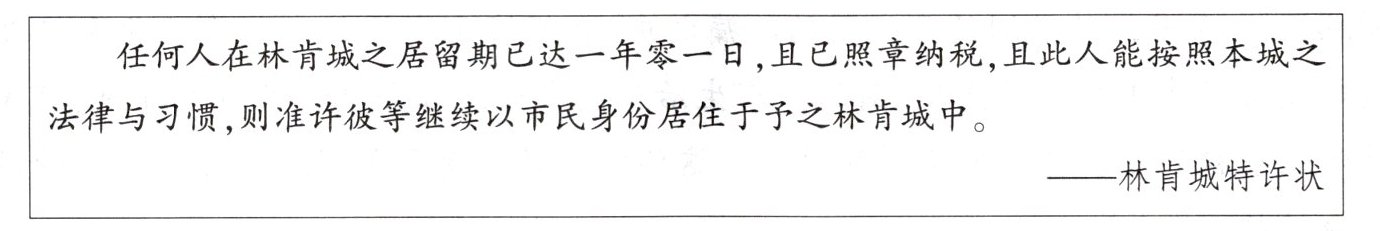 任何人在林肯城之居留期已达一年零一日,且已照章纳税,且此人能按照本城之
法律与习惯,则准许彼等继续以市民身份居住于予之林肯城中。
——林肯城特许状